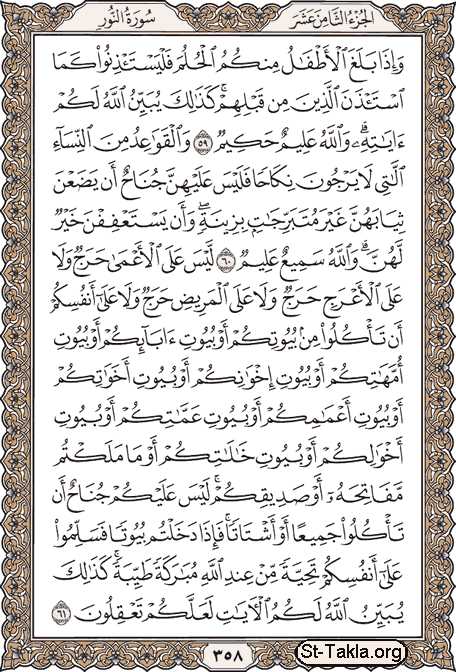 الجزء الثامن عشر سورة النور
وَإِذَا بَلَغَ ٱلۡأَطۡفَٰلُ مِنكُمُ ٱلۡحُلُمَ فَلۡيَسۡتَـٔۡذِنُواْ كَمَا
ٱسۡتَـٔۡذَنَ ٱلَّذِينَ مِن قَبۡلِهِمۡۚ كَذَٰلِكَ يُبَيِّنُ ٱللَّهُ لَكُمۡ
ءَايَٰتِهِۦۗ وَٱللَّهُ عَلِيمٌ حَكِيمٞ ٥٩ وَٱلۡقَوَٰعِدُ مِنَ ٱلنِّسَآءِ
ٱلَّٰتِي لَا يَرۡجُونَ نِكَاحٗا فَلَيۡسَ عَلَيۡهِنَّ جُنَاحٌ أَن يَضَعۡنَ
ثِيَابَهُنَّ غَيۡرَ مُتَبَرِّجَٰتِۭ بِزِينَةٖۖ وَأَن يَسۡتَعۡفِفۡنَ خَيۡرٞ
لَّهُنَّۗ وَٱللَّهُ سَمِيعٌ عَلِيمٞ ٦٠ لَّيۡسَ عَلَى ٱلۡأَعۡمَىٰ حَرَجٞ وَلَا
عَلَى ٱلۡأَعۡرَجِ حَرَجٞ وَلَا عَلَى ٱلۡمَرِيضِ حَرَجٞ وَلَا عَلَىٰٓ أَنفُسِكُمۡ
أَن تَأۡكُلُواْ مِنۢ بُيُوتِكُمۡ أَوۡ بُيُوتِ ءَابَآئِكُمۡ أَوۡ بُيُوتِ
أُمَّهَٰتِكُمۡ أَوۡ بُيُوتِ إِخۡوَٰنِكُمۡ أَوۡ بُيُوتِ أَخَوَٰتِكُمۡ
أَوۡ بُيُوتِ أَعۡمَٰمِكُمۡ أَوۡ بُيُوتِ عَمَّٰتِكُمۡ أَوۡ بُيُوتِ
أَخۡوَٰلِكُمۡ أَوۡ بُيُوتِ خَٰلَٰتِكُمۡ أَوۡ مَا مَلَكۡتُم
مَّفَاتِحَهُۥٓ أَوۡ صَدِيقِكُمۡۚ لَيۡسَ عَلَيۡكُمۡ جُنَاحٌ أَن
تَأۡكُلُواْ جَمِيعًا أَوۡ أَشۡتَاتٗاۚ فَإِذَا دَخَلۡتُم بُيُوتٗا فَسَلِّمُواْ
عَلَىٰٓ أَنفُسِكُمۡ تَحِيَّةٗ مِّنۡ عِندِ ٱللَّهِ مُبَٰرَكَةٗ طَيِّبَةٗۚ كَذَٰلِكَ
يُبَيِّنُ ٱللَّهُ لَكُمُ ٱلۡأٓيَٰتِ لَعَلَّكُمۡ تَعۡقِلُونَ ٦١
٣٥٨
St-Takla.org